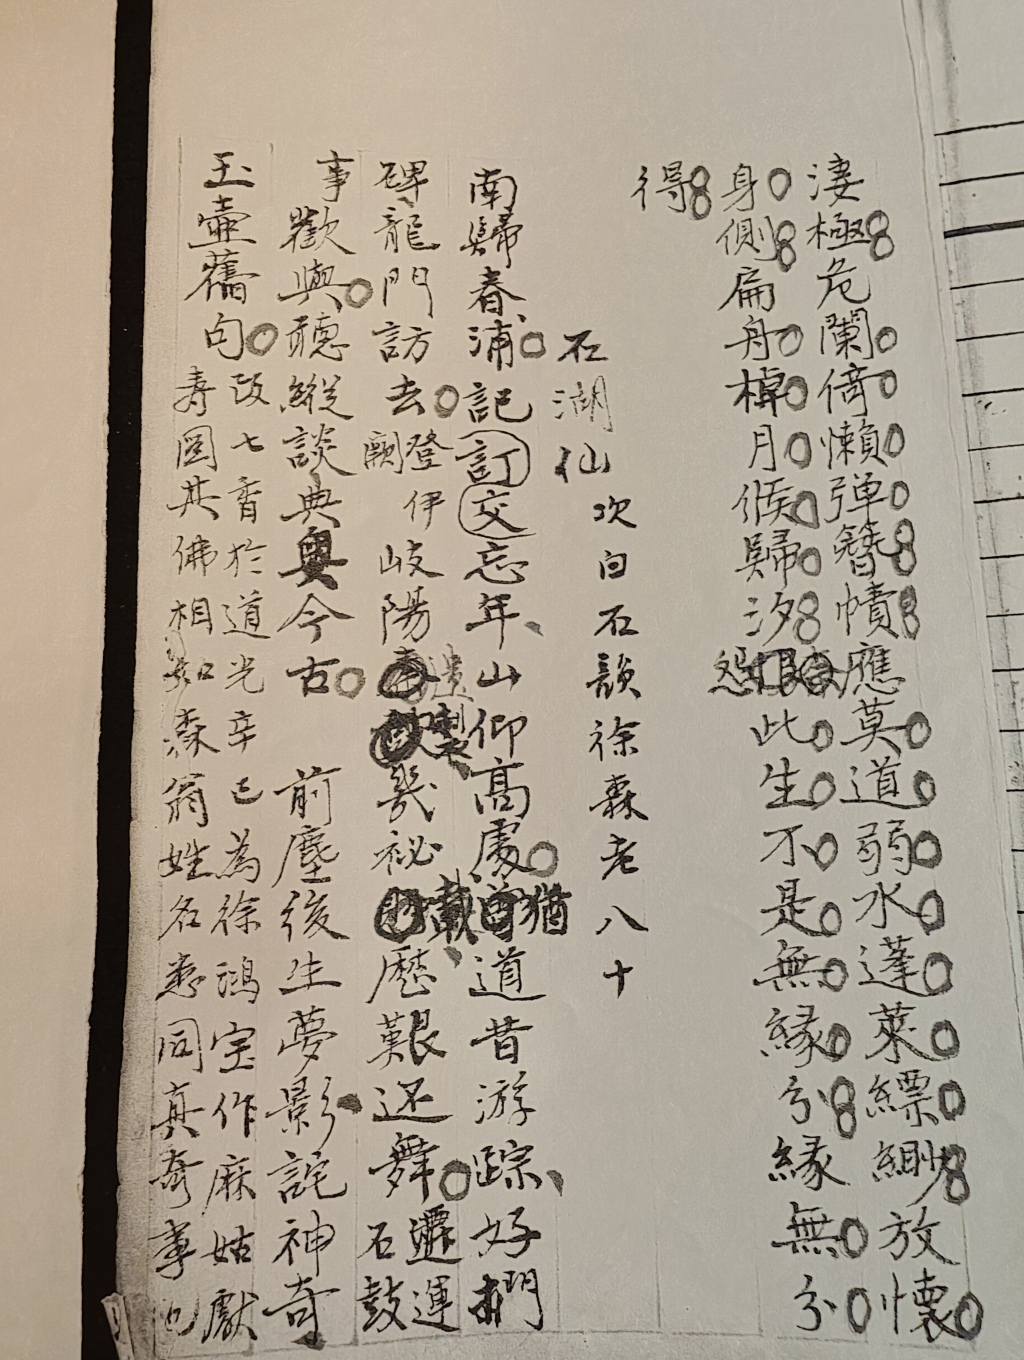 淒極危闌倚懶彈簪幘應莫道弱水蓬萊縹緲放懷
身側扁舟棹月候歸汐怨此生不是無緣分緣無分
得
石湖仙 次白石韻徐森老八十
南歸春浦記訂交忘年山仰高處猶道昔游踪好捫
碑龍門訪去登伊闕岐陽遺製幾祕載歷艱還舞遷運石鼓
事歡與聽縱談典奧今古 前塵後生夢影詫神奇
玉壺舊句改七香於道光辛巳為徐鴻宝作麻姑獻
壽圖其佛相如森翁姓名悉同真奇事也